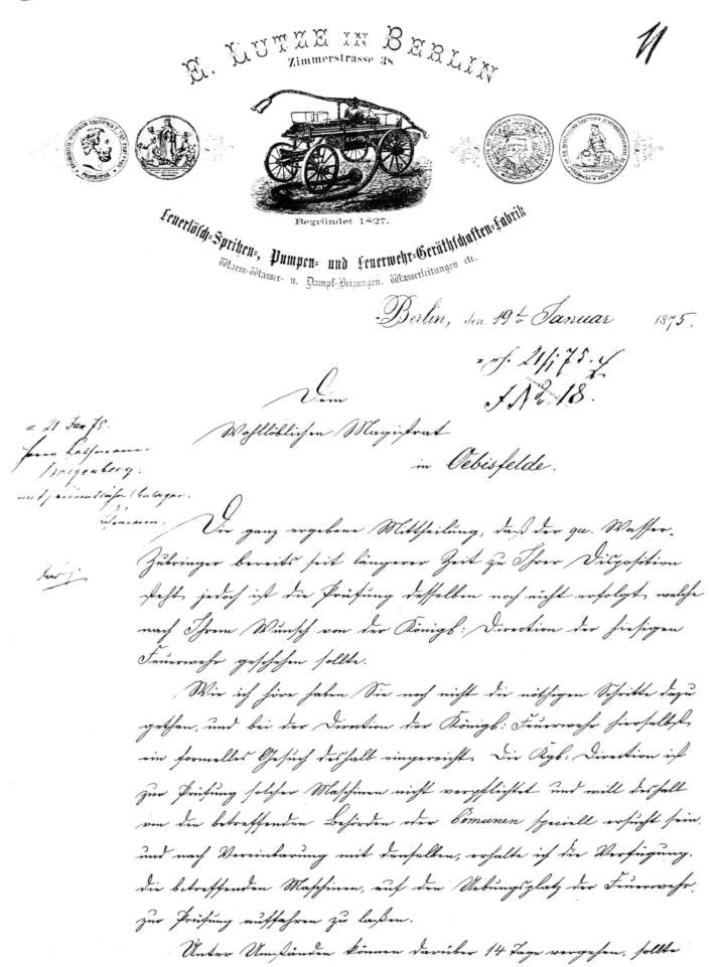 11
E. LUTZE IN BERLIN
Zimmerstrasse 38
Begründet 1827.
Feuerlösch-Spritzen-, Pumpen- und Feuerwehr-Geräthschaften-Fabrik
Warm-Wasser- u. Dampf-Heizungen, Wasserleitungen etc.
Berlin, den 19t Januar 1875.
21/1 75.
J № 18.
Dem
Wohllöblichen Magistrat
in Oebisfelde.
21 Jan 75.
Herrn Rathmann
Die ganz ergebene Mittheilung, daß der qu. Wasser-
Zubringer bereits seit längerer Zeit zu Ihrer Disposition
steht, jedoch ist die Prüfung desselben noch nicht erfolgt, welche
nach Ihrem Wunsch von der Königl: Direction der hiesigen
Feuerwehr geschehen sollte.
Wie ich höre haben Sie noch nicht die nöthigen Schritte dazu
gethan, und bei der Direction der Königl: Feuerwehr hierselbst
ein formelles Gesuch deshalb eingereicht. Die Kgl: Direction ist
zur Prüfung solcher Maschinen nicht verpflichtet und will deshalb
von den betreffenden Behörden oder Comunen speciell ersucht sein.
und nach Vereinbarung mit denselben, erhalte ich die Verfügung,
die betreffenden Maschinen, auf den Uebungsplatz der Feuerwehr,
zur Prüfung auffahren zu laßen.
Unter Umständen können darüber 14 Tage vergehen, sollte